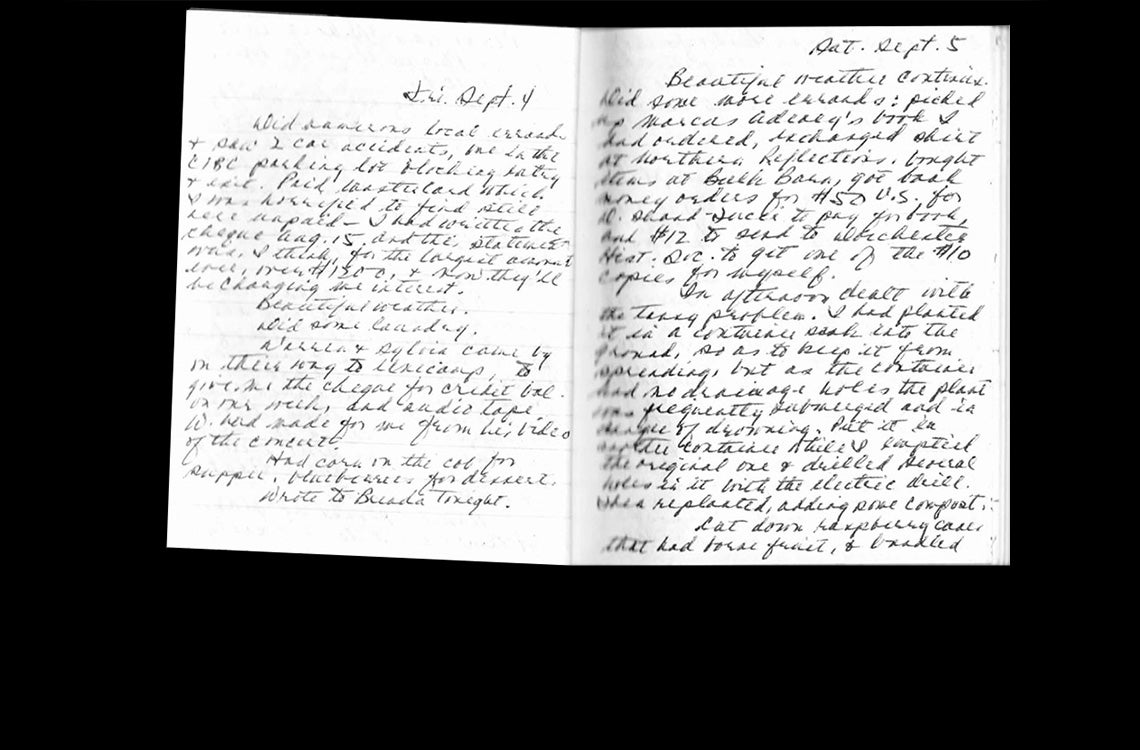 Fri. Sept. 4
Did numerous local errands
& saw 2 car accidents, one in the
CIBC parking lot blocking entry
& exit. Paid Mastercard which
I was horrified to find still
here unpaid - I had written the
cheque Aug. 15 and the statement
was, I think, for the largest amount
ever, over $1300, & now they'll
be charging me interest.
Beautiful weather.
Did some laundry.
Warren & Sylvia came by
on their way to to
give me the cheque for credit bal.
on our week, and audio tape
W. had made for me from his video
of the concert.
Had corn on the cob for
supper, blueberries for dessert.
Wrote to Brenda tonight.
Sat. Sept. 5
Beautiful weather continues.
Did some more errands: picked
up Marcus Adeney's book I
had ordered, exchanged shirt
at Northern Reflections, bought
items at Bulk Barn, got bank
money orders for $50 U.S. for
D. Shand-Tucci to pay for book,
and $12 to send to Dorchester
Hist. Soc. to get one of the $10
copies for myself.
In afternoon dealt with
the tansy problem. I had planted
it in a container sunk into the
ground, so as to keep it from
spreading, but as the container
had no drainage holes the plant
was frequently submerged and in
danger of drowning. Put it in
another container while I emptied
the original one & drilled several
holes in it with the electric drill.
Then replanted, adding some compost.
Cut down raspberry canes
that had borne fruit, & bundled